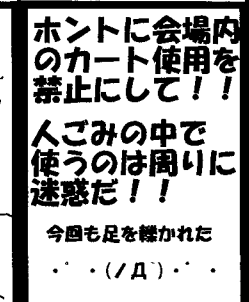 ホントに会場内
のカート使用を
禁止にして！！
人ごみの中で
使うのは周りに
迷惑だ！！
今回も足を轢かれた
・゜・(ノД`)・゜・